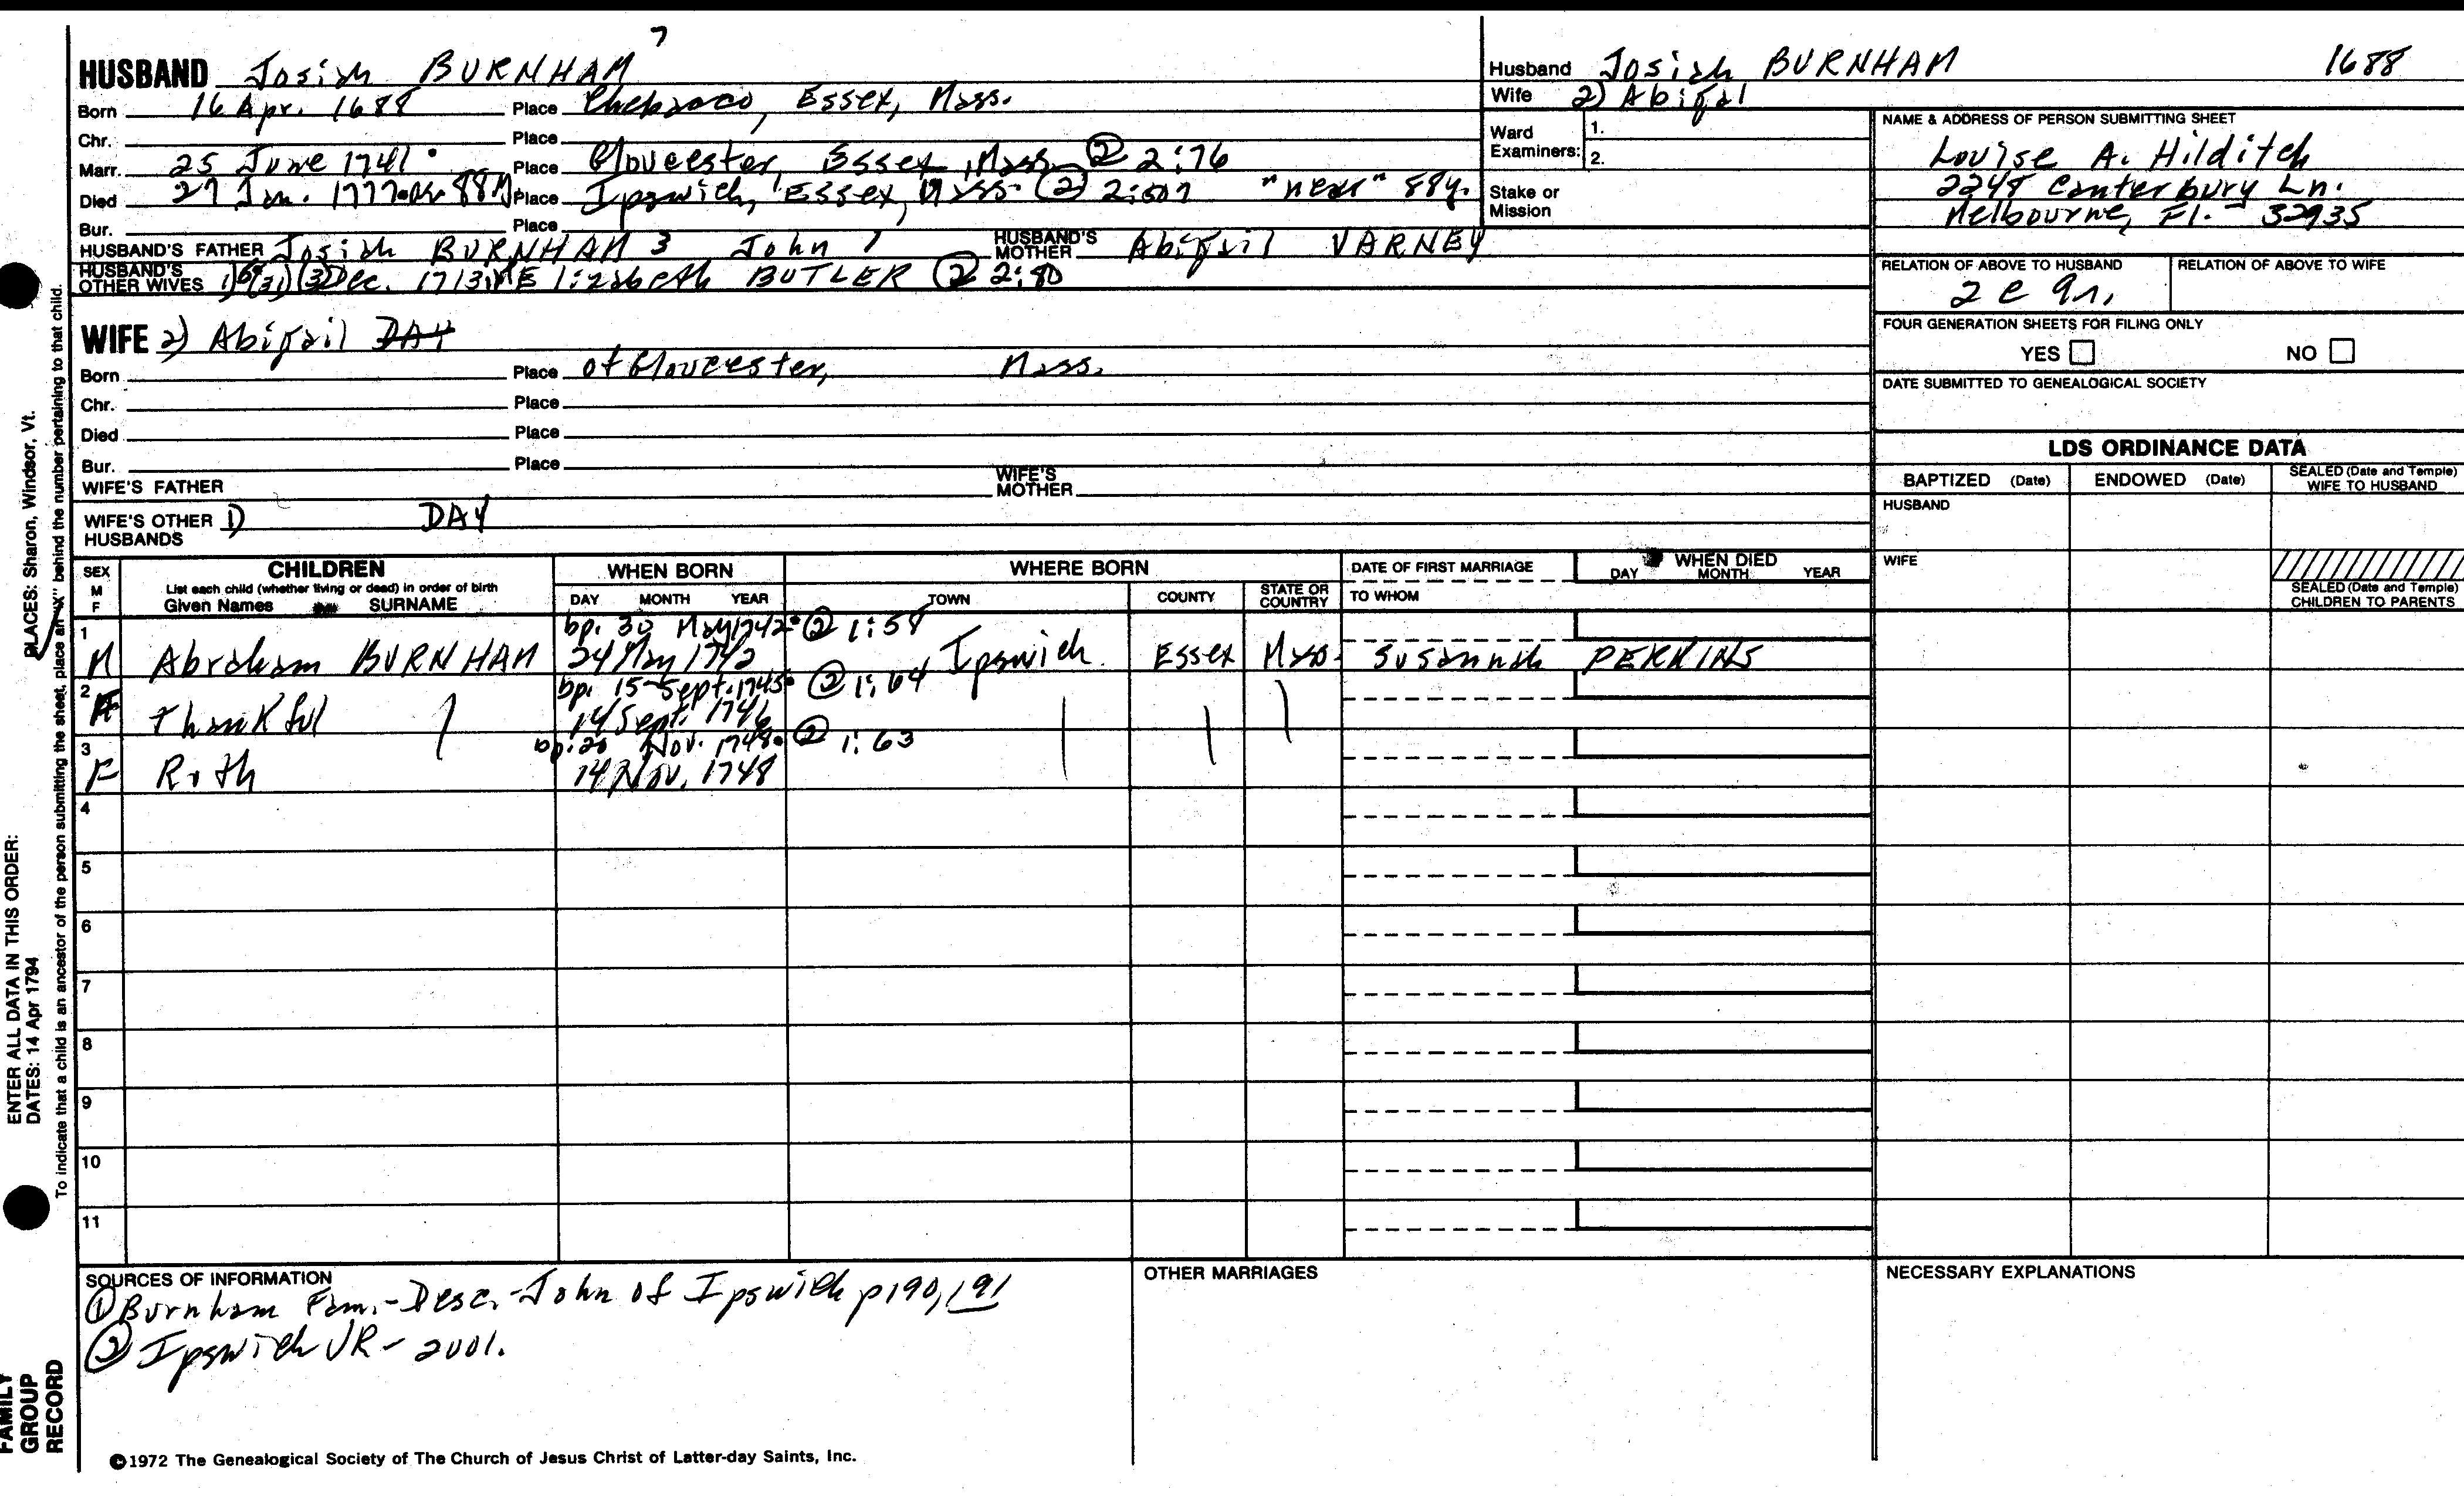 7
HUSBAND Josiah BURNHAM
Born 16 Apr. 1688 Place Chebacco, Essex, Mass.
Chr. Place
Marr. 25 June 1741 Place Gloucester, Essex, Mass. ② 2:76
Died 27 Jan. 1777 88 Place Ipswich, Essex, Mass. ② 2:507 "near" 88y.
Bur. Place
HUSBAND'S FATHER Josiah BURNHAM 3 John 1 HUSBAND'S MOTHER Abigail VARNEY
HUSBAND'S OTHER WIVES 1) Dec. 1713 Elizabeth BUTLER ② 2:80
WIFE 2) Abigail DAY
Born Place of Gloucester, Mass.
Chr. Place
Died Place
Bur. Place
WIFE'S FATHER WIFE'S MOTHER
WIFE'S OTHER HUSBANDS 1) DAY
Husband Josiah BURNHAM 1688
Wife 2) Abigal
Ward Examiners: 1.
2.
Stake or Mission
NAME & ADDRESS OF PERSON SUBMITTING SHEET
Louise A. Hilditch
2248 Canterbury Ln.
Melbourne, Fl. - 32935
RELATION OF ABOVE TO HUSBAND RELATION OF ABOVE TO WIFE
2 c 9n.
FOUR GENERATION SHEETS FOR FILING ONLY
YES NO
DATE SUBMITTED TO GENEALOGICAL SOCIETY
LDS ORDINANCE DATA
BAPTIZED (Date) ENDOWED (Date) SEALED (Date and Temple) WIFE TO HUSBAND
HUSBAND
WIFE
SEALED (Date and Temple) CHILDREN TO PARENTS
SEX M F CHILDREN WHEN BORN WHERE BORN DATE OF FIRST MARRIAGE WHEN DIED
List each child (whether living or dead) in order of birth
Given Names SURNAME DAY MONTH YEAR TOWN COUNTY STATE OR COUNTRY TO WHOM DAY MONTH YEAR
1 bp. 30 May 1742 ② 1:58
M Abraham BURNHAM 24 May 1742 Ipswich Essex Mass. Susannah PERKINS
2 bp. 15 Sept. 1745 ② 1:64
F Thankful 14 Sept. 1746
3 bp. 20 Nov. 1748 ② 1:63
F Ruth 14 Nov. 1748
4
5
6
7
8
9
10
11
SOURCES OF INFORMATION
① Burnham Fam.-Desc.-John of Ipswich p190, 191
② Ipswich VR - 2001.
OTHER MARRIAGES
NECESSARY EXPLANATIONS
©1972 The Genealogical Society of The Church of Jesus Christ of Latter-day Saints, Inc.
ENTER ALL DATA IN THIS ORDER:
DATES: 14 Apr 1794 PLACES: Sharon, Windsor, Vt.
To indicate that a child is an ancestor of the person submitting the sheet, place an "X" behind the number pertaining to that child.
FAMILY
GROUP
RECORD